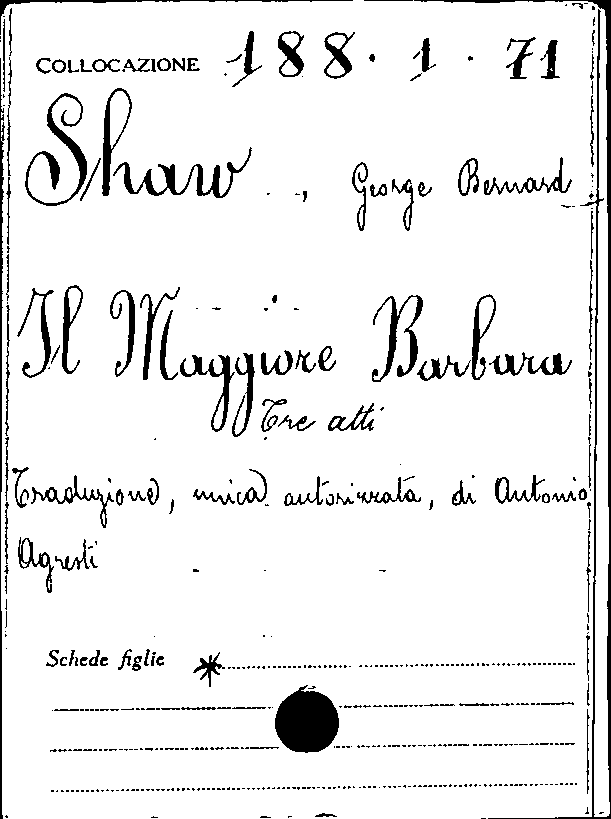 COLLOCAZIONE 188. 1. 71
Shaw, George Bernard
Il Maggiore Barbara
Tre atti
Traduzione, unica autorizzata, di Antonio
Agresti
Schede figlie *